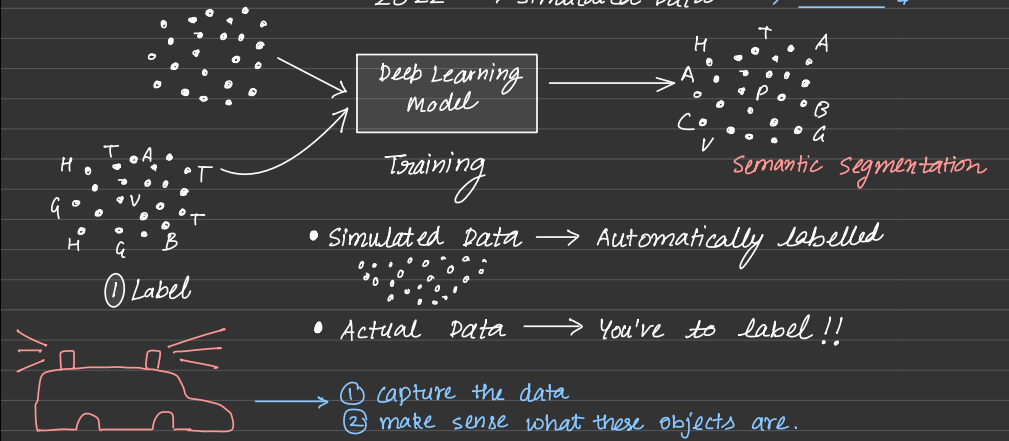 2022 simulated data
H T A
A
P
C B
V G
Deep Learning
Model
Training
Semantic Segmentation
H T A T
G V T
H G B
① Label
• Simulated Data → Automatically labelled
• Actual Data → You've to label!!
① capture the data
② make sense what these objects are.